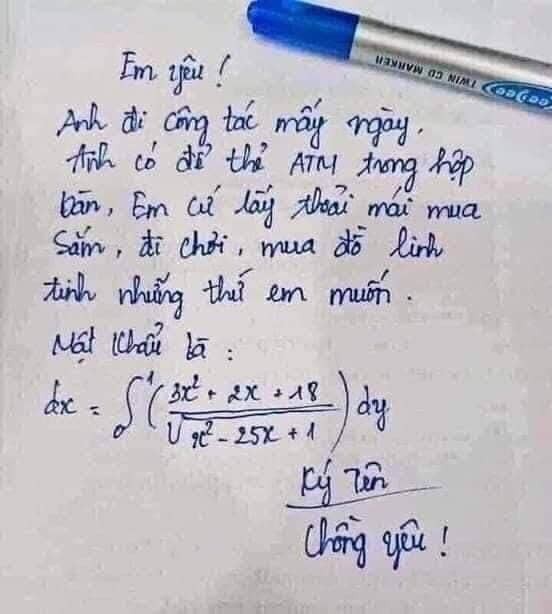 TWIN CD MARKER
Em yêu !
Anh đi công tác mấy ngày.
Anh có để thẻ ATM trong hộp
bàn, Em cứ lấy thoải mái mua
Sắm, đi chơi, mua đồ linh
tinh những thứ em muốn.
Mật Khẩu là :
dx = ∫₀¹ ( (3x² + 2x + 18) / √(x² - 25x + 1) ) dy
Ký Tên
Chồng yêu !